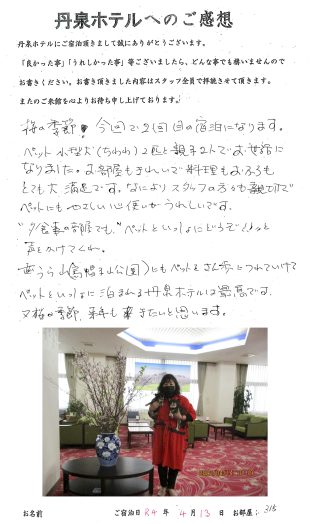 丹泉ホテルへのご感想
丹泉ホテルにご宿泊頂きまして誠にありがとうございます。
「良かった事」「うれしかった事」等ございましたら、どんな事でも構いませんので
お書きください。お書き頂きました内容はスタッフ全員で拝読させて頂きます。
またのご来館を心よりお待ち申し上げております。
桜の季節! 今回で2回目の宿泊になります。
ペット小型犬(ちわわ)2匹と親子2人でお世話に
なりました。お部屋もきれいで料理もおふろも
とても大満足です。なによりスタッフの方々も親切で
ペットにもやさしい心使いがうれしいです。
"夕食事の部屋でも、"ペットといっしょにどうぞ!!っと
声をかけてくれ、
裏うら山(烏帽子山公園)にもペットをさん歩につれていけて
ペットといっしょに泊まれる丹泉ホテルは最高です。
又桜の季節、来年も来きたいと思います。
お名前 ご宿泊日 R4 年 4 月 13 日 お部屋: 315